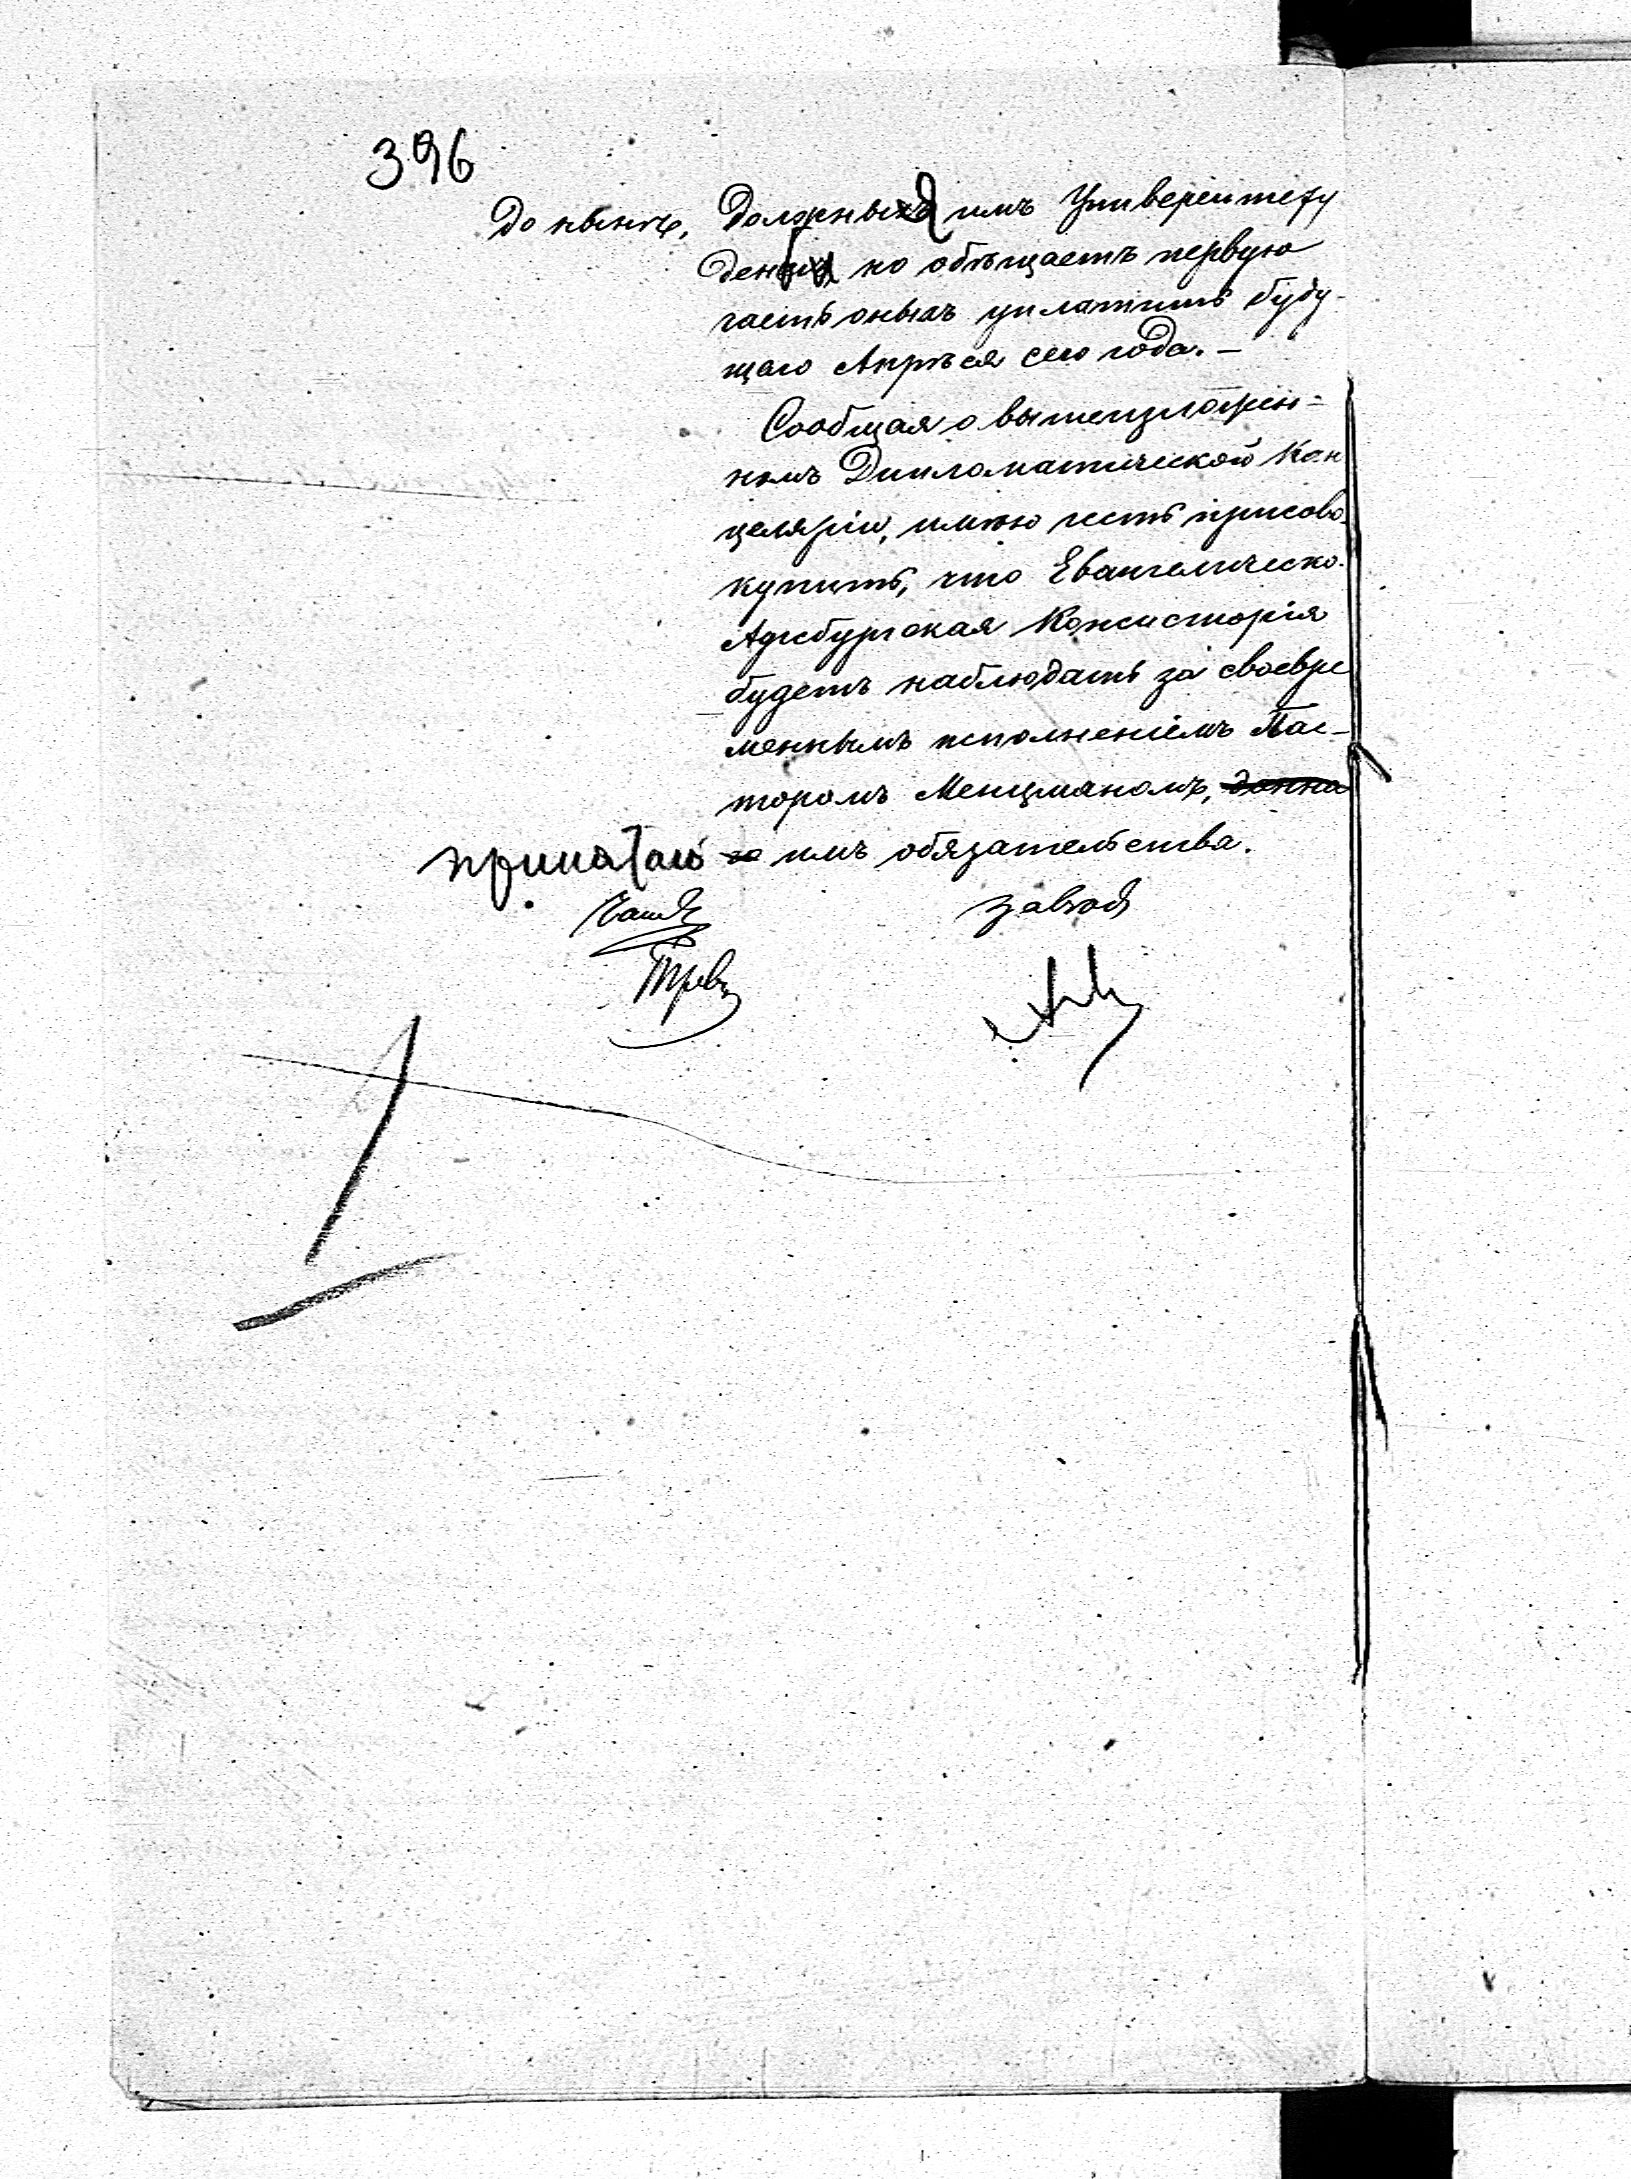 396
До нынѣ, должныя имъ Университету
деньги но обѣщаетъ первую
часть оныхъ уплатить буду-
щаго Апрѣля сего года. –
Сообщая о вышеизложен-
номъ Дипломатической Кан
целяріи, имѣю честь присово-
купить, что Евангелическо-
Аугсбургская Консисторія
будетъ наблюдать за своевре
меннымъ исполненіемъ Пас-
торомъ Менцманомъ, данна
принятаго го имъ обязательства.